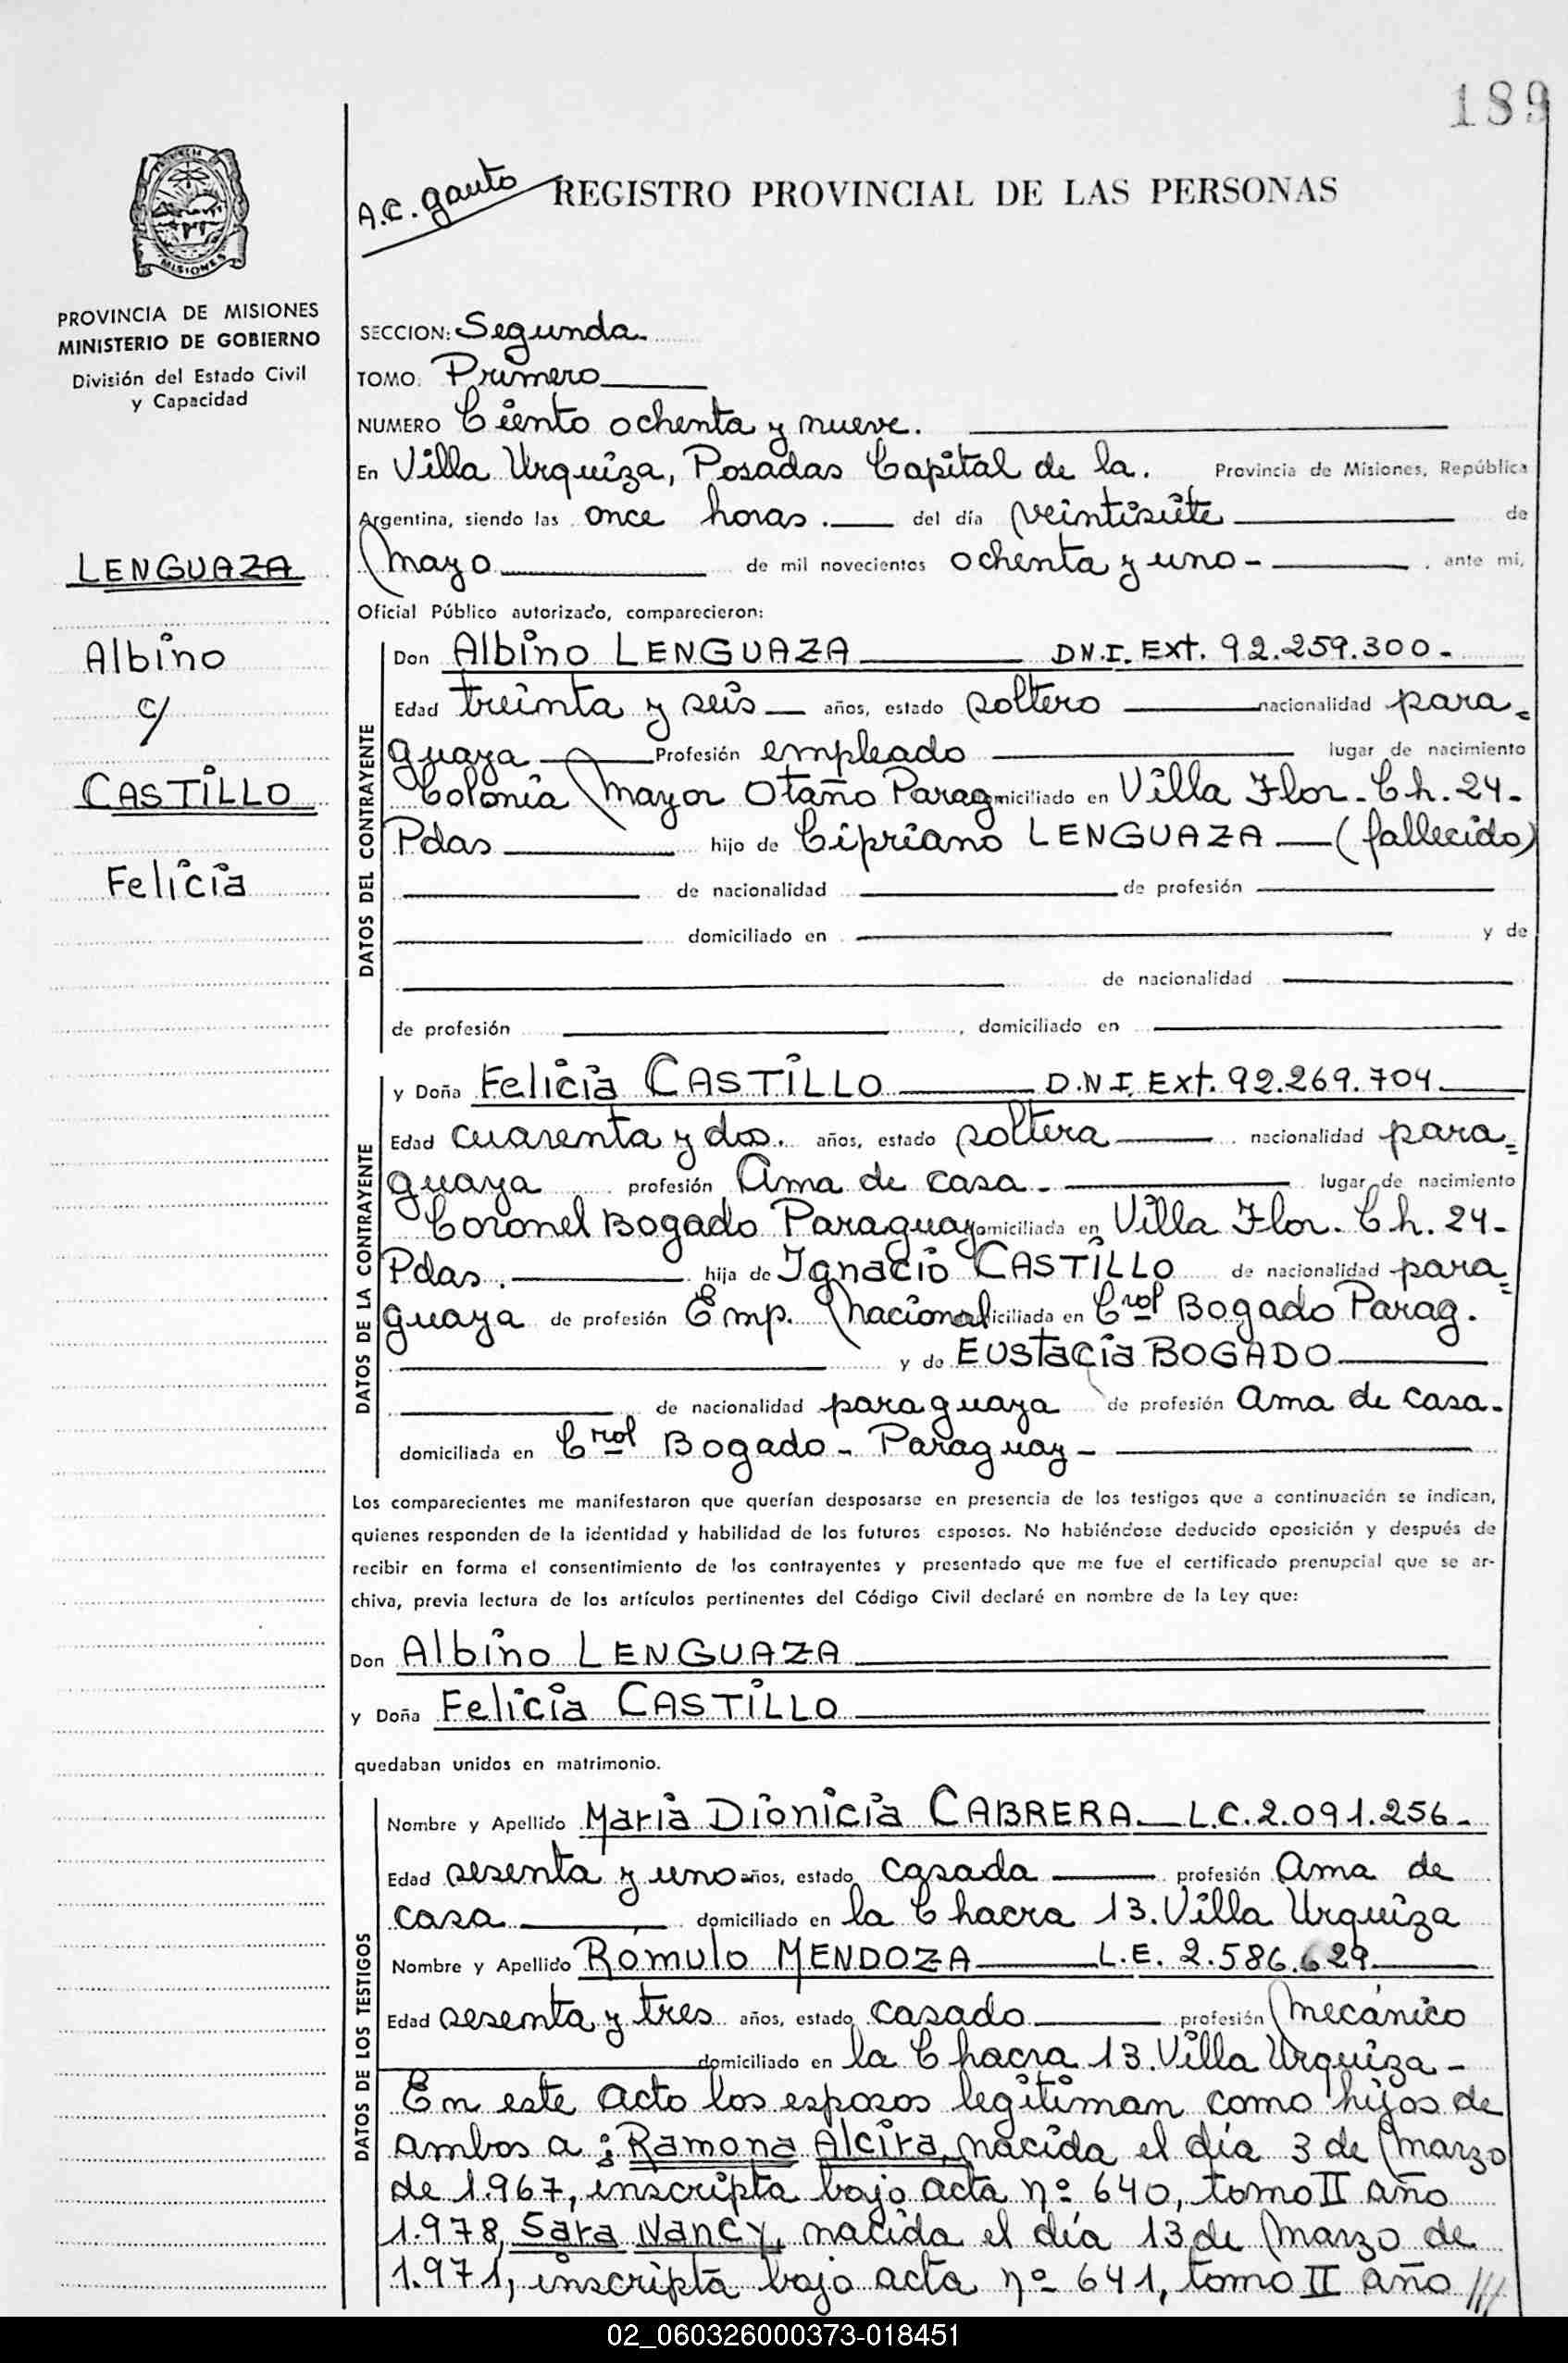 189
A.C. Gauto
REGISTRO PROVINCIAL DE LAS PERSONAS
MISIONES
PROVINCIA DE MISIONES
MINISTERIO DE GOBIERNO
División del Estado Civil
y Capacidad
LENGUAZA
Albino
c/
CASTILLO
Felicia
SECCION: Segunda.
TOMO: Primero
NUMERO Ciento ochenta y nueve.
En Villa Urquiza, Posadas Capital de la. Provincia de Misiones, República
Argentina, siendo las once horas. del día veintisiete de
mayo de mil novecientos ochenta y uno - , ante mi,
Oficial Público autorizado, comparecieron:
DATOS DEL CONTRAYENTE
Don Albino LENGUAZA D.N.I. Ext. 92.259.300.-
Edad treinta y seis años, estado soltero nacionalidad para=
guaya Profesión empleado lugar de nacimiento
Colonia Mayor Otaño Parag miciliado en Villa Flor - Ch. 24-
Pdas hijo de Cipriano LENGUAZA (fallecido)
de nacionalidad de profesión
domiciliado en y de
de nacionalidad
de profesión , domiciliado en
DATOS DE LA CONTRAYENTE
y Doña Felicia CASTILLO D.N.I. Ext. 92.269.704.
Edad cuarenta y dos. años, estado soltera nacionalidad para=
guaya profesión Ama de casa - lugar de nacimiento
Coronel Bogado Paraguay omiciliada en Villa Flor. Ch. 24-
Pdas. hija de Ignacio CASTILLO de nacionalidad para=
guaya de profesión Emp. Nacional iciliada en Crol Bogado Parag.
y de EUSTACIA BOGADO
de nacionalidad paraguaya de profesión Ama de casa.
domiciliada en Crol Bogado - Paraguay -
Los comparecientes me manifestaron que querían desposarse en presencia de los testigos que a continuación se indican,
quienes responden de la identidad y habilidad de los futuros esposos. No habiéndose deducido oposición y después de
recibir en forma el consentimiento de los contrayentes y presentado que me fue el certificado prenupcial que se ar-
chiva, previa lectura de los artículos pertinentes del Código Civil declaré en nombre de la Ley que:
Don Albino LENGUAZA
y Doña Felicia CASTILLO
quedaban unidos en matrimonio.
DATOS DE LOS TESTIGOS
Nombre y Apellido Maria Dionicia CABRERA L.C. 2.091.256.
Edad sesenta y uno años, estado casada profesión Ama de
casa domiciliado en la Chacra 13. Villa Urquiza
Nombre y Apellido Rómulo MENDOZA L.E. 2.586.629
Edad sesenta y tres años, estado casado profesión mecánico
domiciliado en la Chacra 13. Villa Urquiza -
En este acto los esposos legitiman como hijos de
ambos a: Ramona Alcira, nacida el día 3 de marzo
de 1.967, inscripta bajo acta nº 640, tomo II año
1.978, Sara Nancy, nacida el día 13 de marzo de
1.971, inscripta bajo acta nº 641, tomo II año ///
02_060326000373-018451